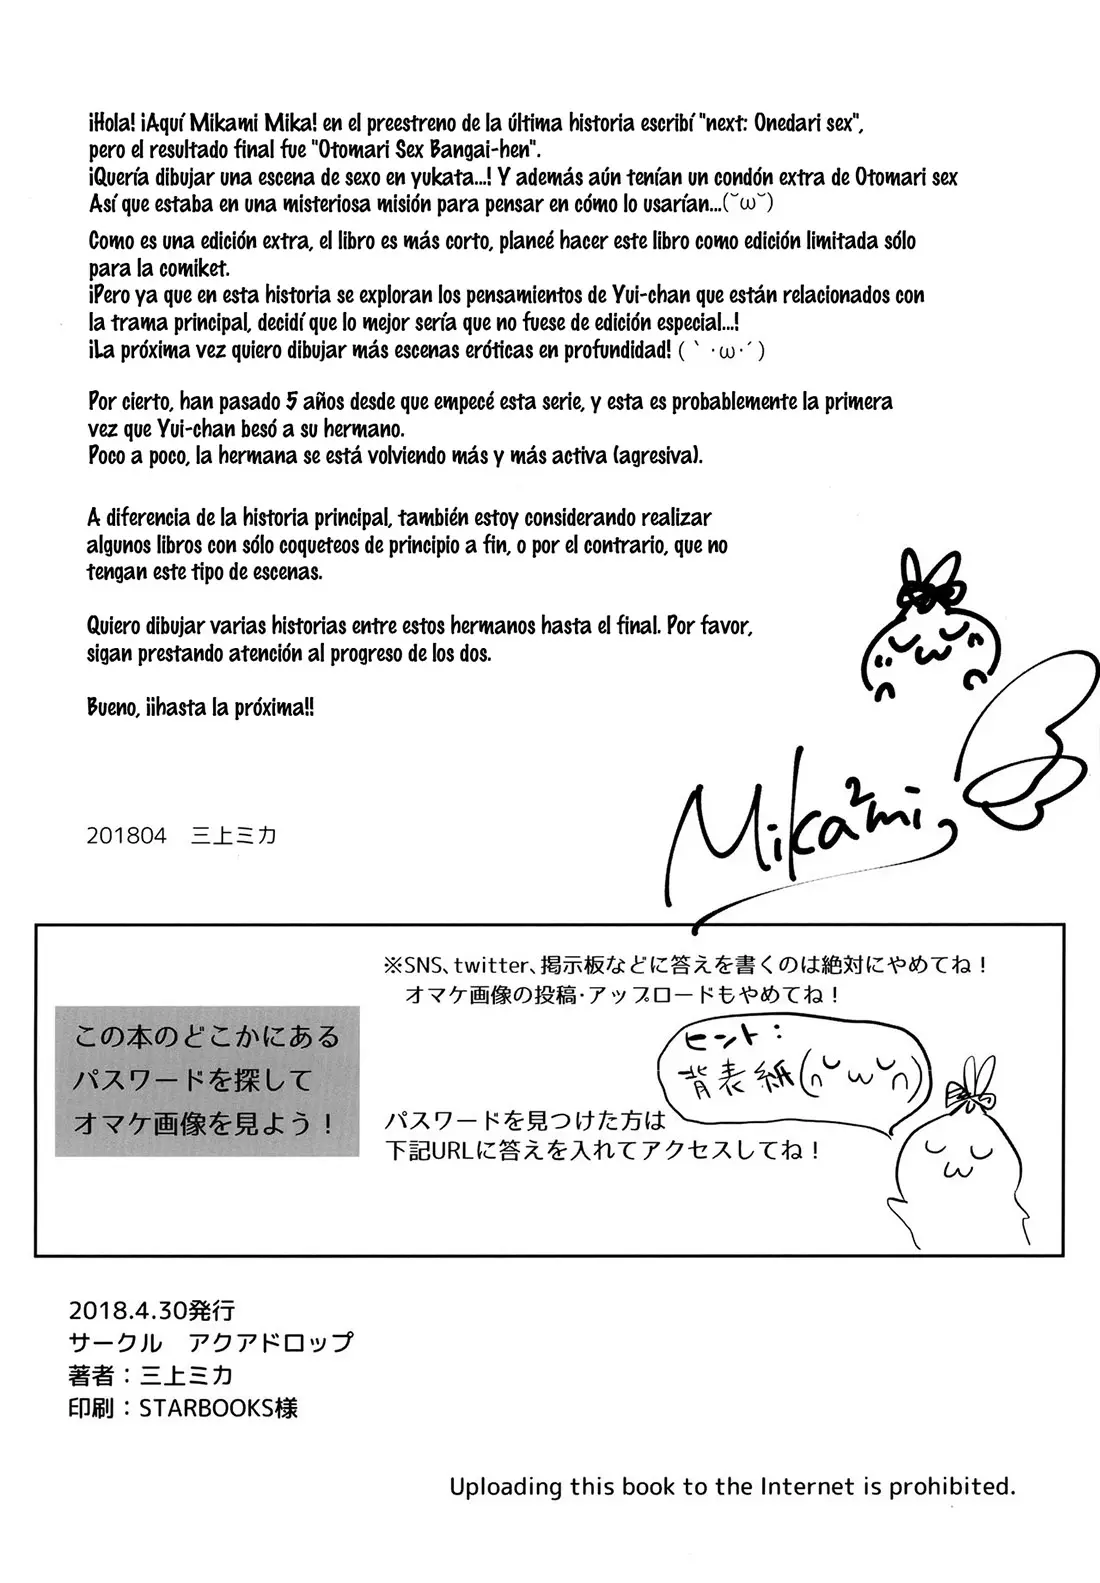 ¡Hola! ¡Aquí Mikami Mika! en el preestreno de la última historia escribí "next: Onedari sex",
pero el resultado final fue "Otomari Sex Bangai-hen".
¡Quería dibujar una escena de sexo en yukata...! Y además aún tenían un condón extra de Otomari sex
Así que estaba en una misteriosa misión para pensar en cómo lo usarían...(˘ω˘)
Como es una edición extra, el libro es más corto, planeé hacer este libro como edición limitada sólo
para la comiket.
¡Pero ya que en esta historia se exploran los pensamientos de Yui-chan que están relacionados con
la trama principal, decidí que lo mejor sería que no fuese de edición especial...!
¡La próxima vez quiero dibujar más escenas eróticas en profundidad! (｀･ω･´)
Por cierto, han pasado 5 años desde que empecé esta serie, y esta es probablemente la primera
vez que Yui-chan besó a su hermano.
Poco a poco, la hermana se está volviendo más y más activa (agresiva).
A diferencia de la historia principal, también estoy considerando realizar
algunos libros con sólo coqueteos de principio a fin, o por el contrario, que no
tengan este tipo de escenas.
Quiero dibujar varias historias entre estos hermanos hasta el final. Por favor,
sigan prestando atención al progreso de los dos.
Bueno, ¡¡hasta la próxima!!
Mika²mi,
201804　三上ミカ
※SNS、twitter、掲示板などに答えを書くのは絶対にやめてね！
オマケ画像の投稿･アップロードもやめてね！
この本のどこかにある
パスワードを探して
オマケ画像を見よう！
ヒント：
背表紙(∩˘ω˘∩)
パスワードを見つけた方は
下記URLに答えを入れてアクセスしてね！
2018.4.30発行
サークル　アクアドロップ
著者：三上ミカ
印刷：STARBOOKS様
Uploading this book to the Internet is prohibited.